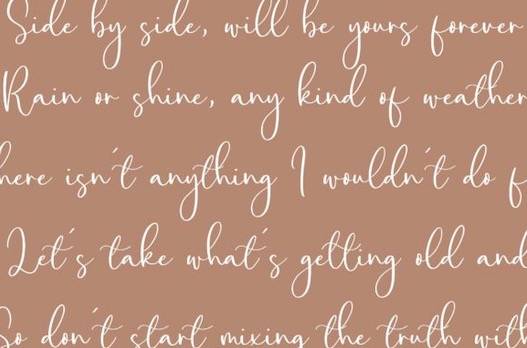 Side by side, will be yours forever
Rain or shine, any kind of weather
here isn't anything I wouldn't do f
Let's take what's getting old and
So don't start mixing the truth with